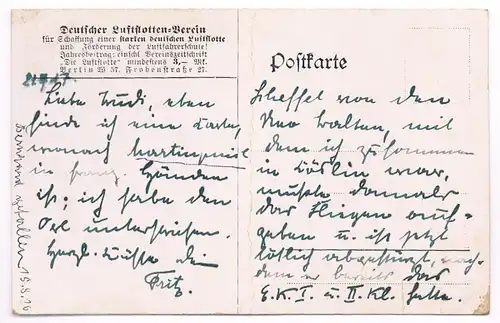 Deutscher Luftflotten-Verein
für Schaffung einer starken deutschen Luftflotte
und Förderung der Luftfahrerschule!
Jahresbeitrag: einschl. Vereinszeitschrift
"Die Luftflotte" mindestens 3,— Mk.
Berlin W 57. Frobenstraße 27.
Postkarte
Liebe Trudi, eben
finde ich eine Karte,
wonach Martinpuich
in franz. Händen
ist; ich habe den
Ort unterstrichen.
Herzl. Küsse dein
Fritz.
Scheffel von den
Neo Walten, mit
dem ich zusammen
in Cöslin war,
mußte damals
das Fliegen auf-
geben u. ist jetzt
tötlich abgestürzt, nach-
dem er bereits das
E.K. I. u. II. Kl. hatte.
gefallen 15.8.16